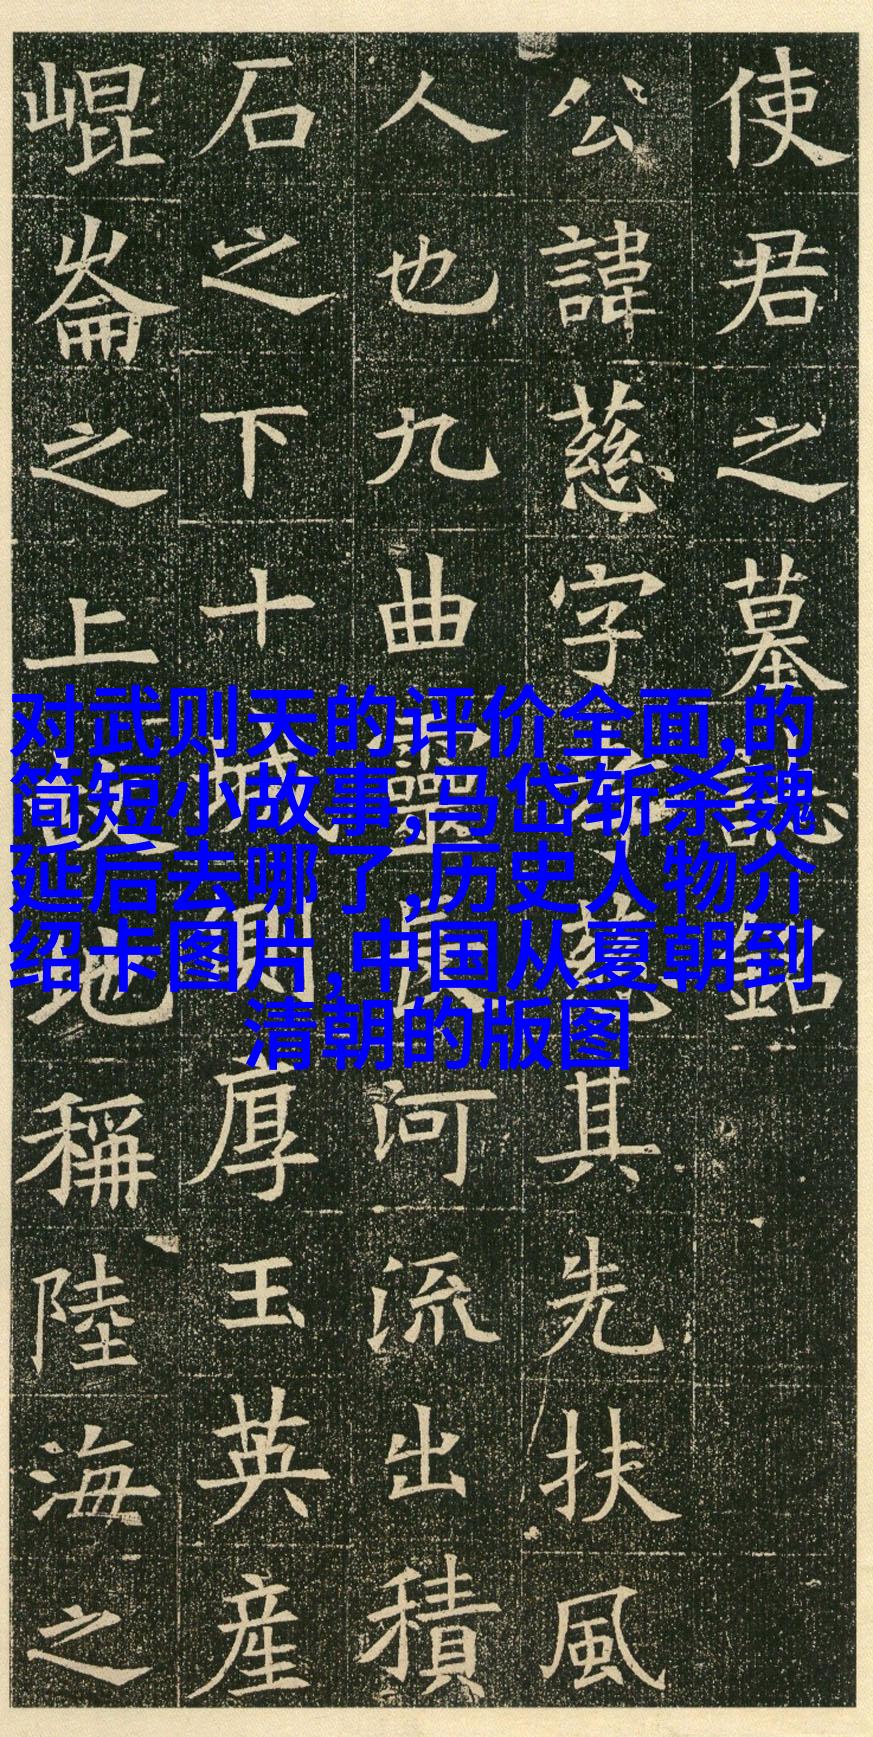 使君之墓誌銘
公諱慈字孝慈其先扶風
人也九曲靈長河流出積
石之下十城側厚玉英産
崐崙之上故地稱陸海之
对武则天的评价全面,的
简短小故事,马岱斩杀魏
延后去哪了,历史人物介
绍卡图片,中国从夏朝到
清朝的版图